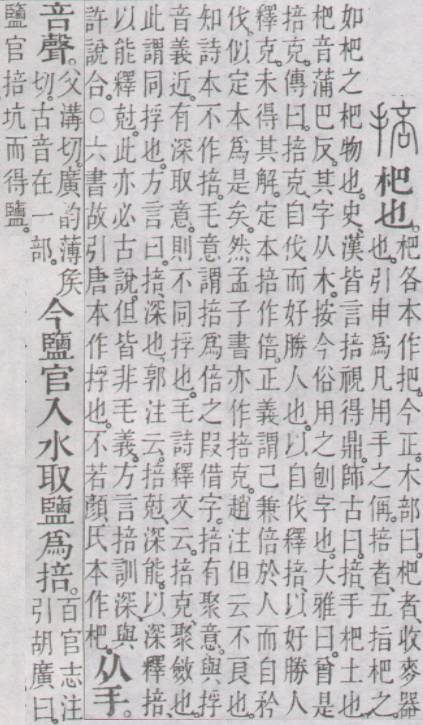 掊 杷也。杷各本作把。今正。木部曰。杷者、收麥器
也。引申爲凡用手之偁。掊者、五指杷之
如杷之杷物也。史、漢皆言掊視得鼎。師古曰。掊、手杷土也。
杷音蒲巴反。其字从木。按今俗用之刨字也。大雅曰。曾是
掊克。傳曰。掊克自伐而好勝人也。以自伐釋掊、以好勝人
釋克。未得其解。定本掊作倍。正義謂己兼倍於人而自矜
伐。似定本爲是矣。然孟子書亦作掊克。趙注但云不良也。
知詩本不作掊。毛意謂掊爲倍之叚借字。掊有聚意。與捊
音義近。有深取意。則不同捊也。毛詩釋文云。掊克、聚斂也。
此謂同捊也。方言曰。掊、深也。郭注云。掊尅、深能。以深釋掊、
以能釋尅。此亦必古說。但皆非毛義。方言掊訓深、與
許說合。○六書故引唐本作捊也。不若顏氏本作杷。从手。
音聲。父溝切。廣韵薄矦切。古音在一部。今鹽官入水取鹽爲掊。百官志注引胡廣曰。
鹽官掊坑而得鹽。